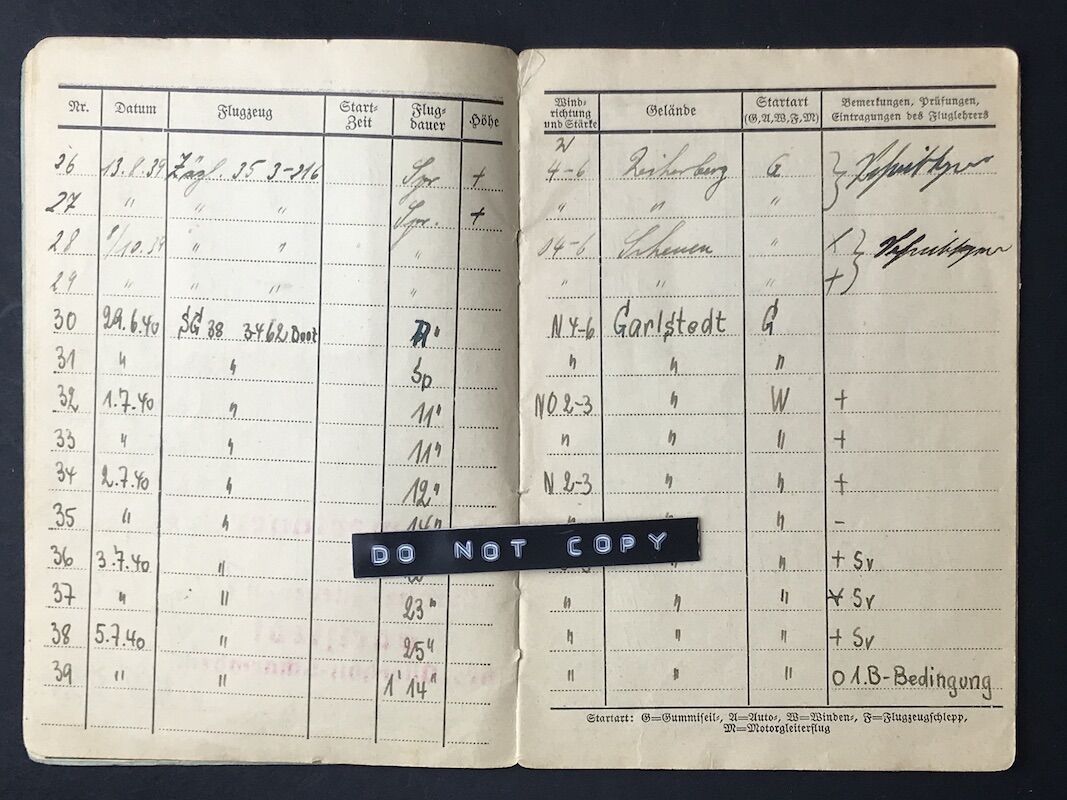 Nr. Datum Flugzeug Start-Zeit Flug-dauer Höhe
26 13.8.39 Zögl. 35 3-216 Spr. +
27 " " " Spr. +
28 /10.39 " " "
29 " " " "
30 29.6.40 SG 38 3462 Boot 11"
31 " " Sp
32 1.7.40 " 11"
33 " " 11"
34 2.7.40 " 12"
35 " " 14"
36 3.7.40 "
37 " " 23"
38 5.7.40 " 25"
39 " " 1'14"
Wind-richtung und Stärke Gelände Startart (G, A, W, F, M) Bemerkungen, Prüfungen, Eintragungen des Fluglehrers
4-6 G
" " "
04-6 Scheuen "
" " " +
N 4-6 Garlstedt G
" " "
NO 2-3 " W +
" " " +
N 2-3 " " +
" " " -
" + Sv
" " " + Sv
" " " + Sv
" " " O 1.B-Bedingung
Startart: G=Gummiseil-, A=Auto-, W=Winden-, F=Flugzeugschlepp,
M=Motorgleiterflug
DO NOT COPY